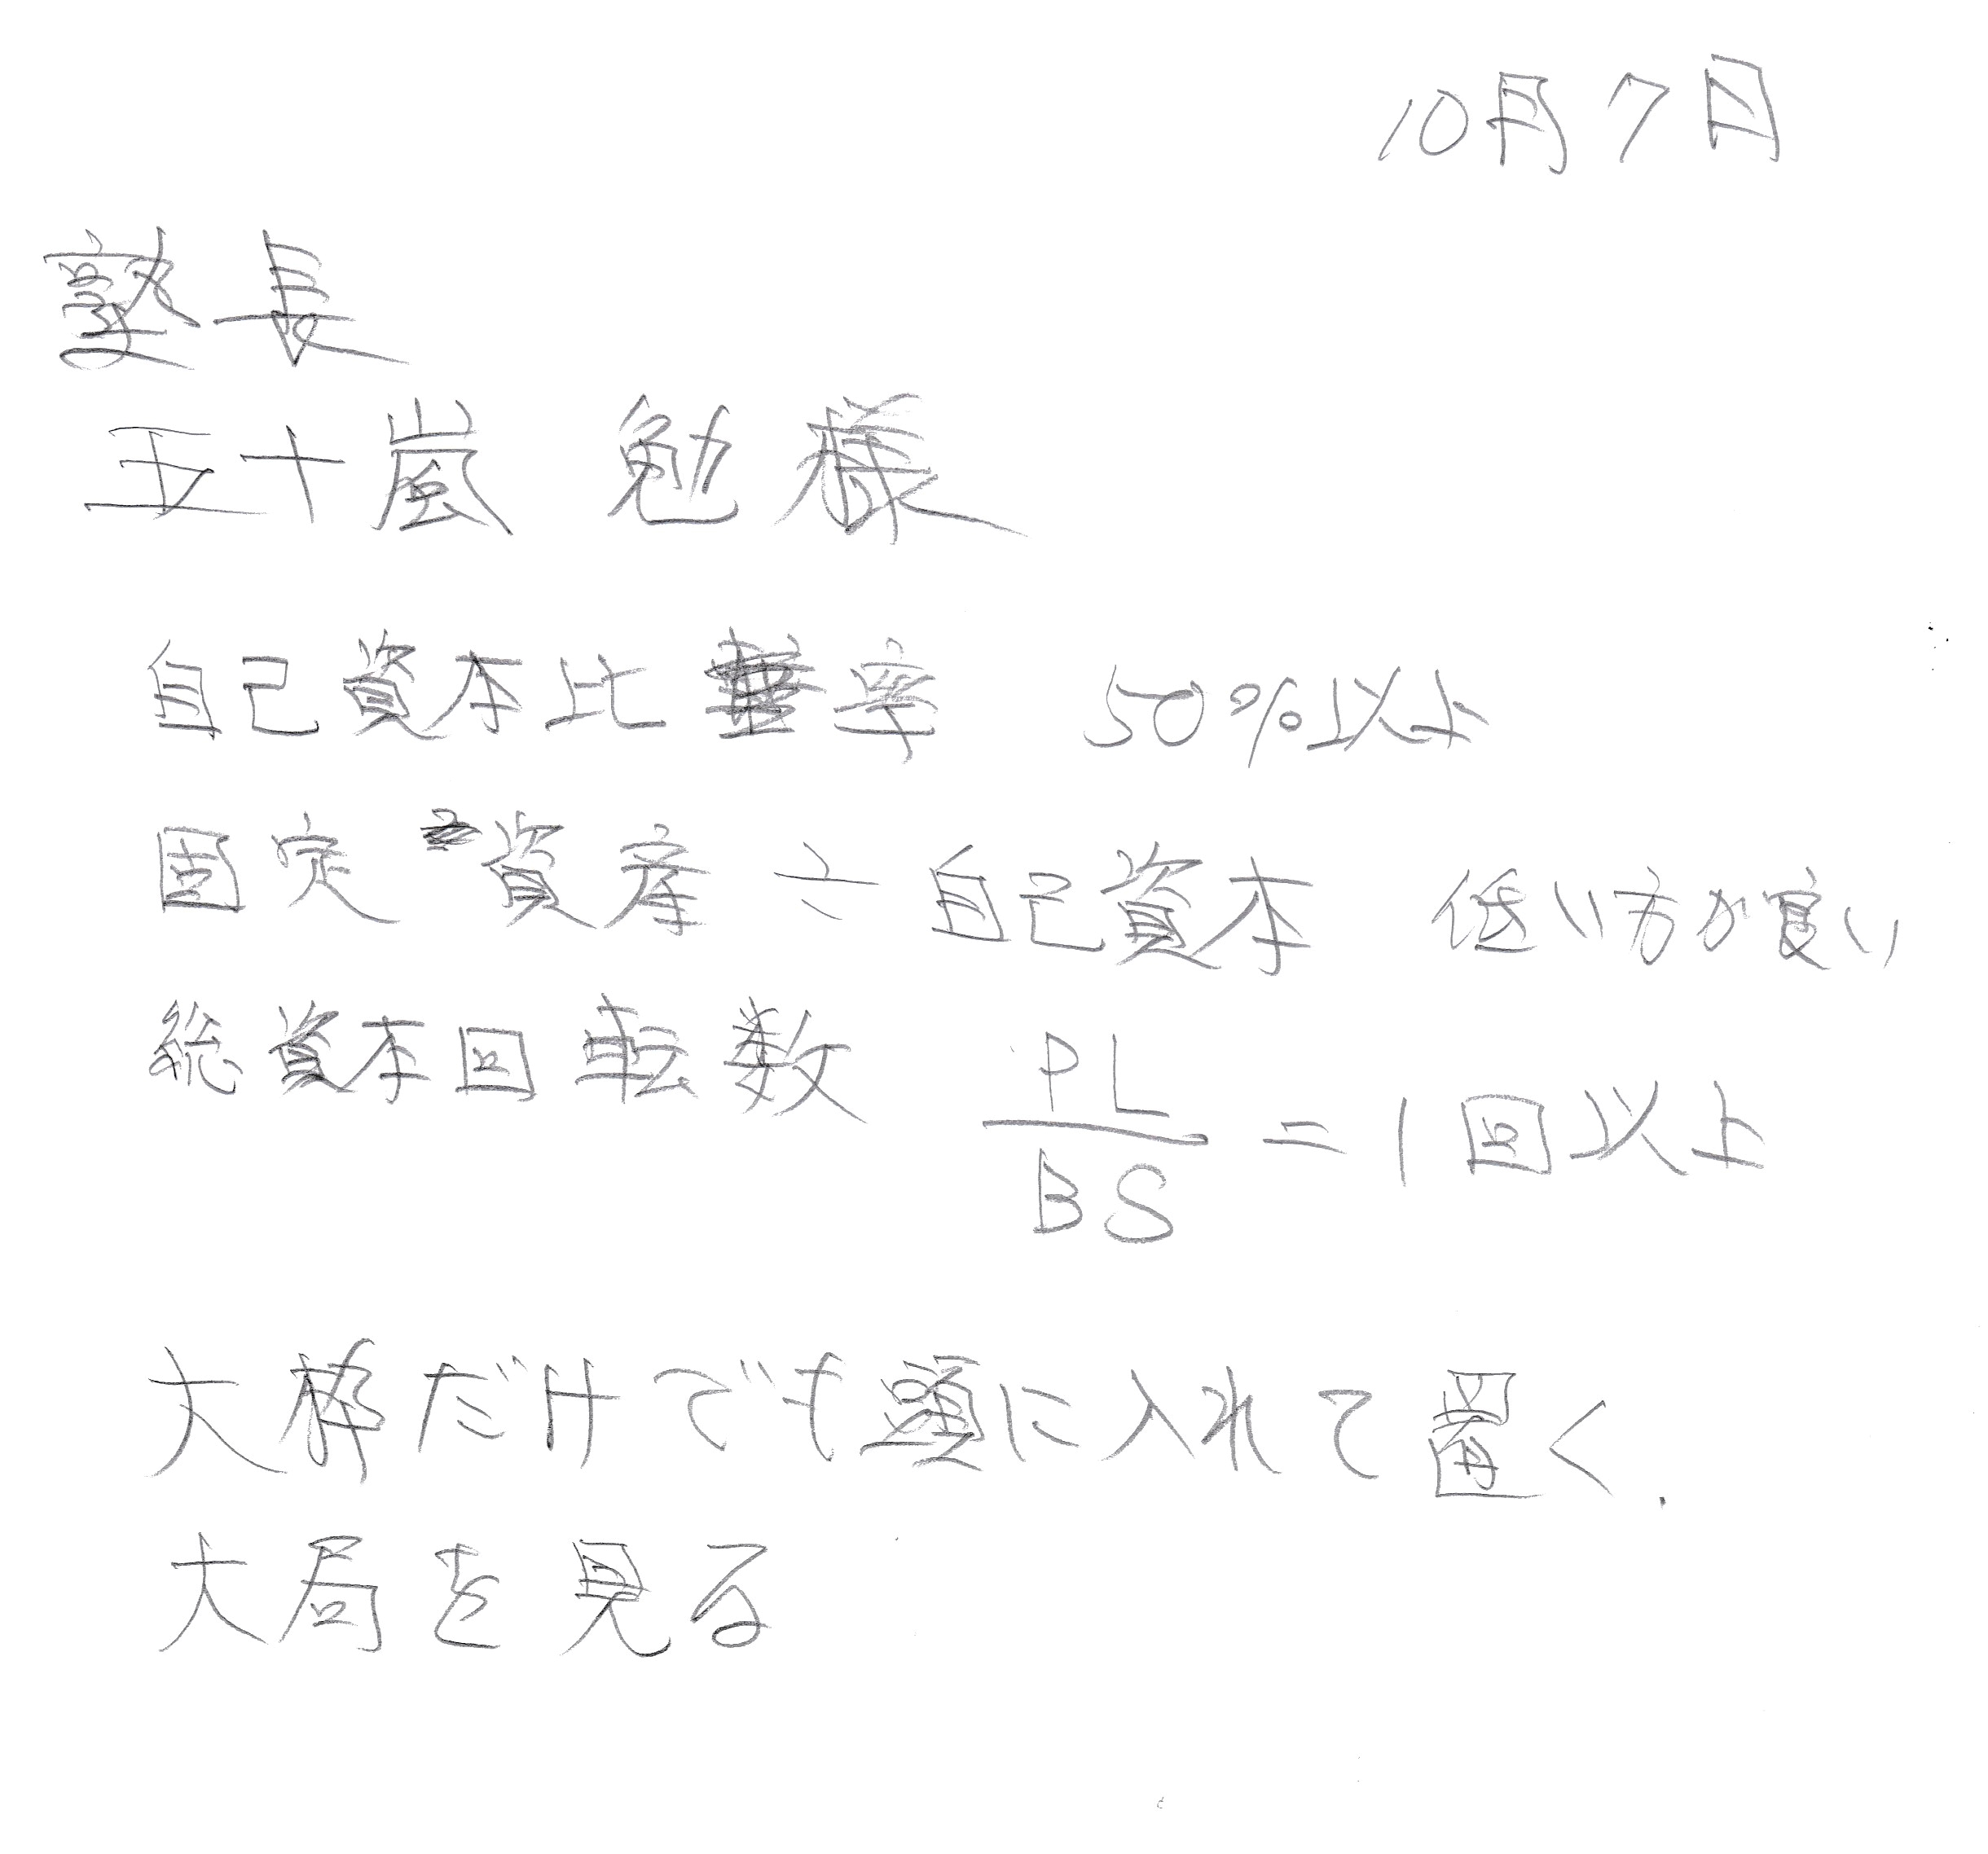 10月7日
塾長
五十嵐 勉様
自己資本比率 50%以上
固定資産÷自己資本 低い方が良い
総資本回転数 PL/BS = 1回以上
大枠だけでも頭に入れて置く.
大局を見る